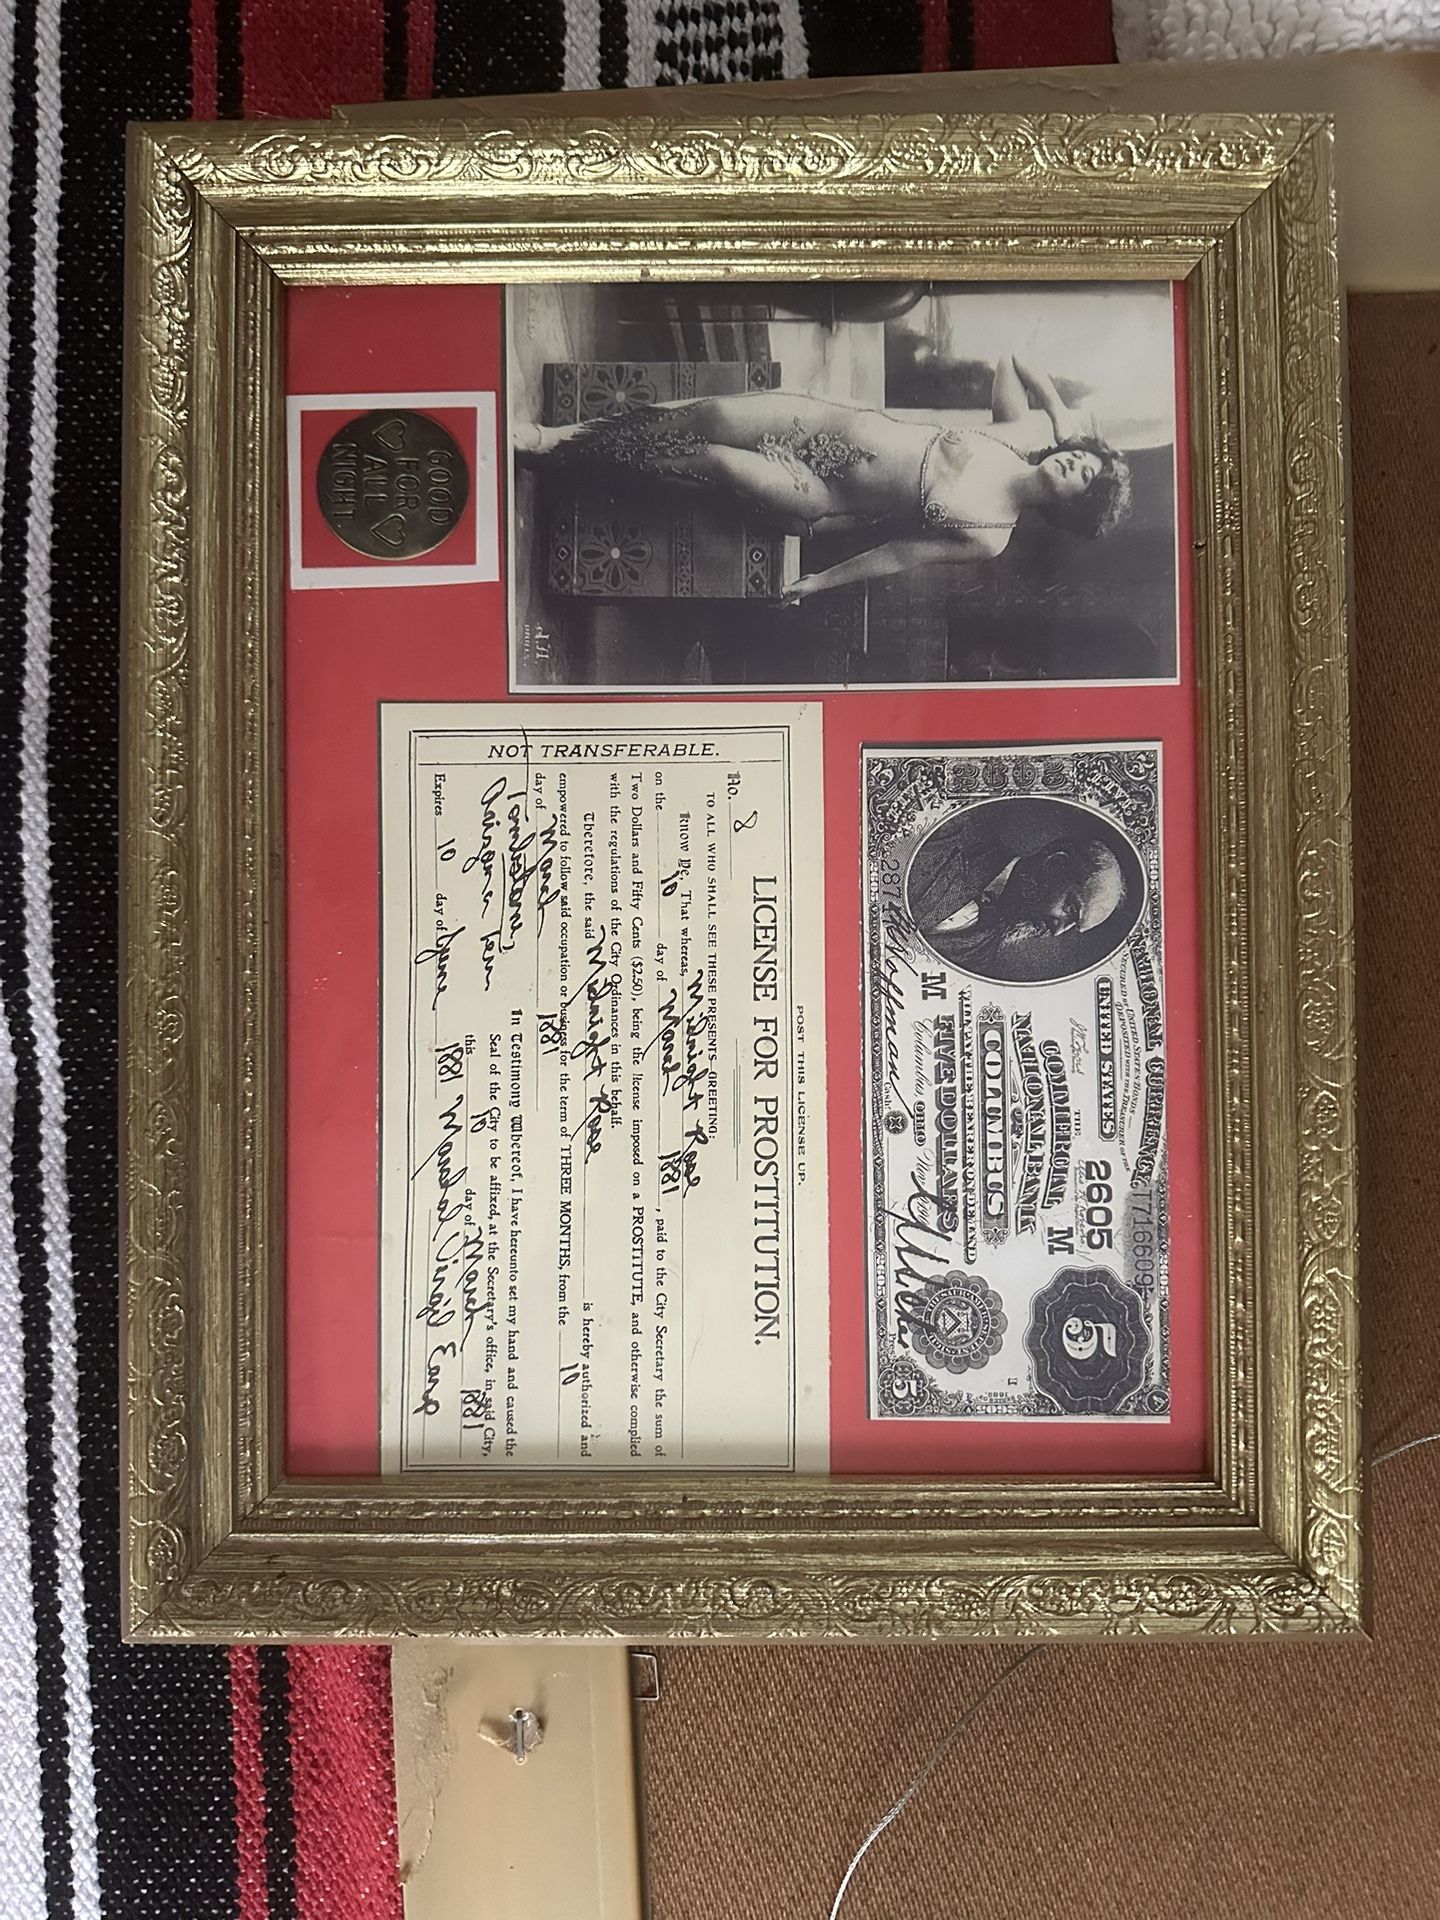 GOOD
FOR
ALL
NIGHT.
PARIS
NATIONAL CURRENCY
T716609
SECURED BY UNITED STATES BONDS
DEPOSITED WITH THE TREASURER OF THE
UNITED STATES
2605
THE
COMMERCIAL
NATIONAL BANK
M
OF
COLUMBUS
WILL PAY THE BEARER ON DEMAND
M FIVE DOLLARS
Columbus, OHIO
Cash
5
5
POST THIS LICENSE UP.
LICENSE FOR PROSTITUTION.
No. 8
TO ALL WHO SHALL SEE THESE PRESENTS GREETING:
Know Ye, That whereas, Midnight Rose
on the 10 day of March 1881, paid to the City Secretary the sum of
Two Dollars and Fifty Cents ($2.50), being the license imposed on a PROSTITUTE, and otherwise complied
with the regulations of the City Ordinances in this behalf.
Therefore, the said Midnight Rose is hereby authorized and
empowered to follow said occupation or business for the term of THREE MONTHS, from the 10
day of March 1881
In Testimony Whereof, I have hereunto set my hand and caused the
Seal of the City to be affixed, at the Secretary's office, in said City,
this 10 day of March 1881
Tombstone,
Arizona Terr
Expires 10 day of June 1881 Marshal Virgil Earp
NOT TRANSFERABLE.